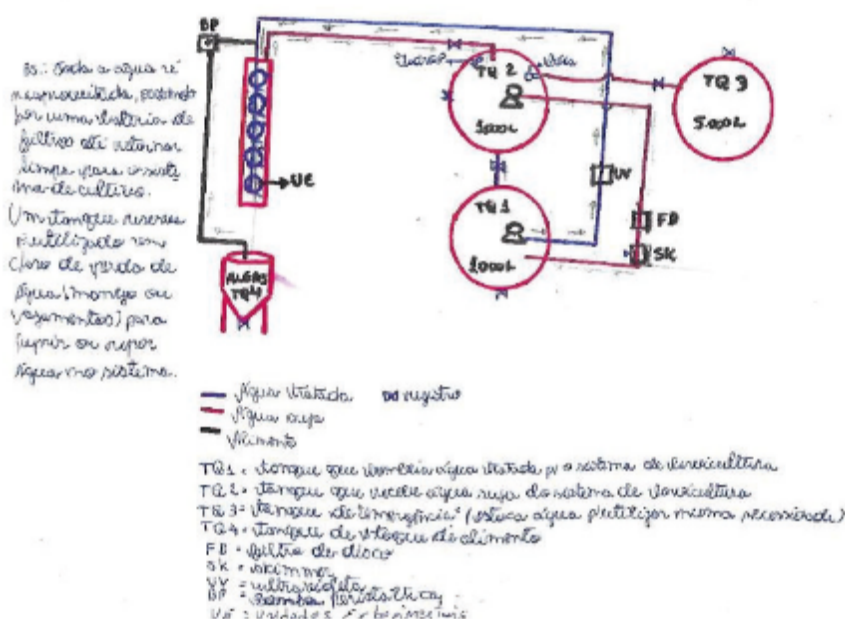 BP
Obs.: Toda a água é
reaproveitada, passando
por uma bateria de
filtros até retornar
limpa para o siste
ma de cultivo.
Um tanque reserva
é utilizado em
caso de perda de
água (manejo ou
vazamentos) para
suprir ou repor
água no sistema.
UE
ALGAS
TQ4
TQ 2
1000L
Bóia
TQ 3
5.000L
UV
TQ 1
1000L
FD
SK
Água tratada registro
Água suja
Alimento
TQ1 = tanque que bombeia água tratada p/ o sistema de larvicultura
TQ2 = tanque que recebe água suja do sistema de larvicultura
TQ3 = tanque de emergência (estoca água p/ utilizar numa necessidade)
TQ4 = tanque de estoque de alimento
FD = filtro de disco
SK = skimmer
UV = ultravioleta
BP = bomba peristáltica
UE = unidades experimentais